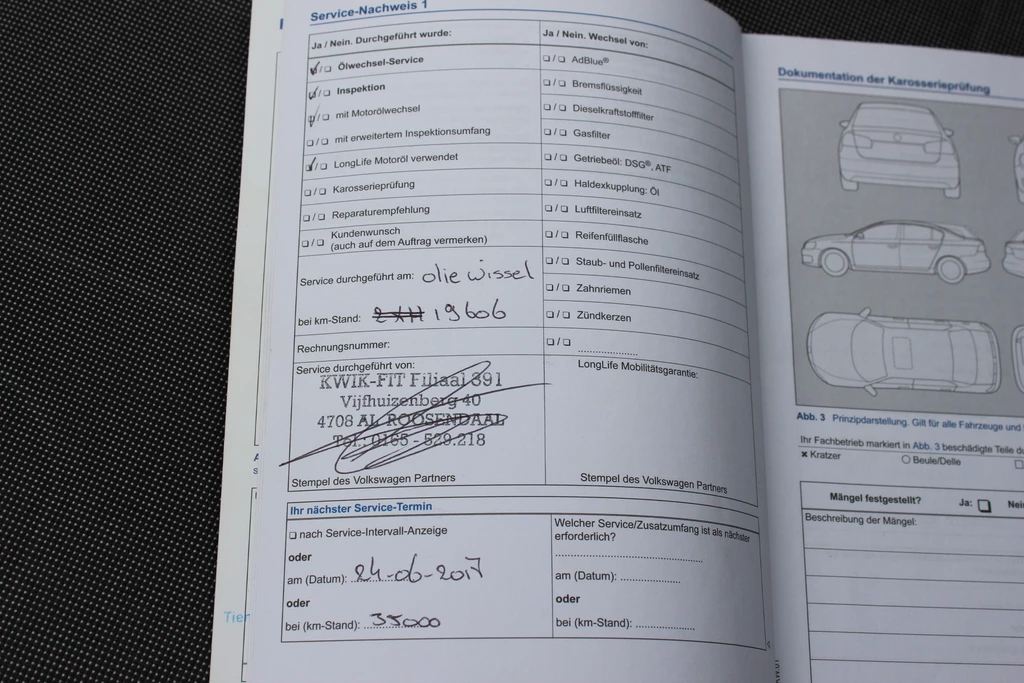 Service-Nachweis 1
Ja / Nein. Durchgeführt wurde:
Ja / Nein. Wechsel von:
/ Ölwechsel-Service
/ AdBlue®
/ Inspektion
/ Bremsflüssigkeit
/ mit Motorölwechsel
/ Dieselkraftstofffilter
/ mit erweitertem Inspektionsumfang
/ Gasfilter
/ LongLife Motoröl verwendet
/ Getriebeöl: DSG®, ATF
/ Karosserieprüfung
/ Haldexkupplung: Öl
/ Reparaturempfehlung
/ Luftfiltereinsatz
/ Kundenwunsch
(auch auf dem Auftrag vermerken)
/ Reifenfüllflasche
Service durchgeführt am: olie wissel
/ Staub- und Pollenfiltereinsatz
/ Zahnriemen
bei km-Stand: 19606
/ Zündkerzen
Rechnungsnummer:
/ ....................
Service durchgeführt von:
LongLife Mobilitätsgarantie:
KWIK-FIT Filiaal 391
Vijfhuizenberg 40
4708 AL ROOSENDAAL
Tel.: 0165 - 529.218
Stempel des Volkswagen Partners
Stempel des Volkswagen Partners
Ihr nächster Service-Termin
nach Service-Intervall-Anzeige
oder
am (Datum): 24-06-2017
oder
bei (km-Stand): 35000
Welcher Service/Zusatzumfang ist als nächster
erforderlich?
am (Datum): ....................
oder
bei (km-Stand): ....................
Dokumentation der Karosserieprüfung
Abb. 3 Prinzipdarstellung. Gilt für alle Fahrzeuge und
Ihr Fachbetrieb markiert in Abb. 3 beschädigte Teile
Kratzer
Beule/Delle
Mängel festgestellt? Ja:
Beschreibung der Mängel: